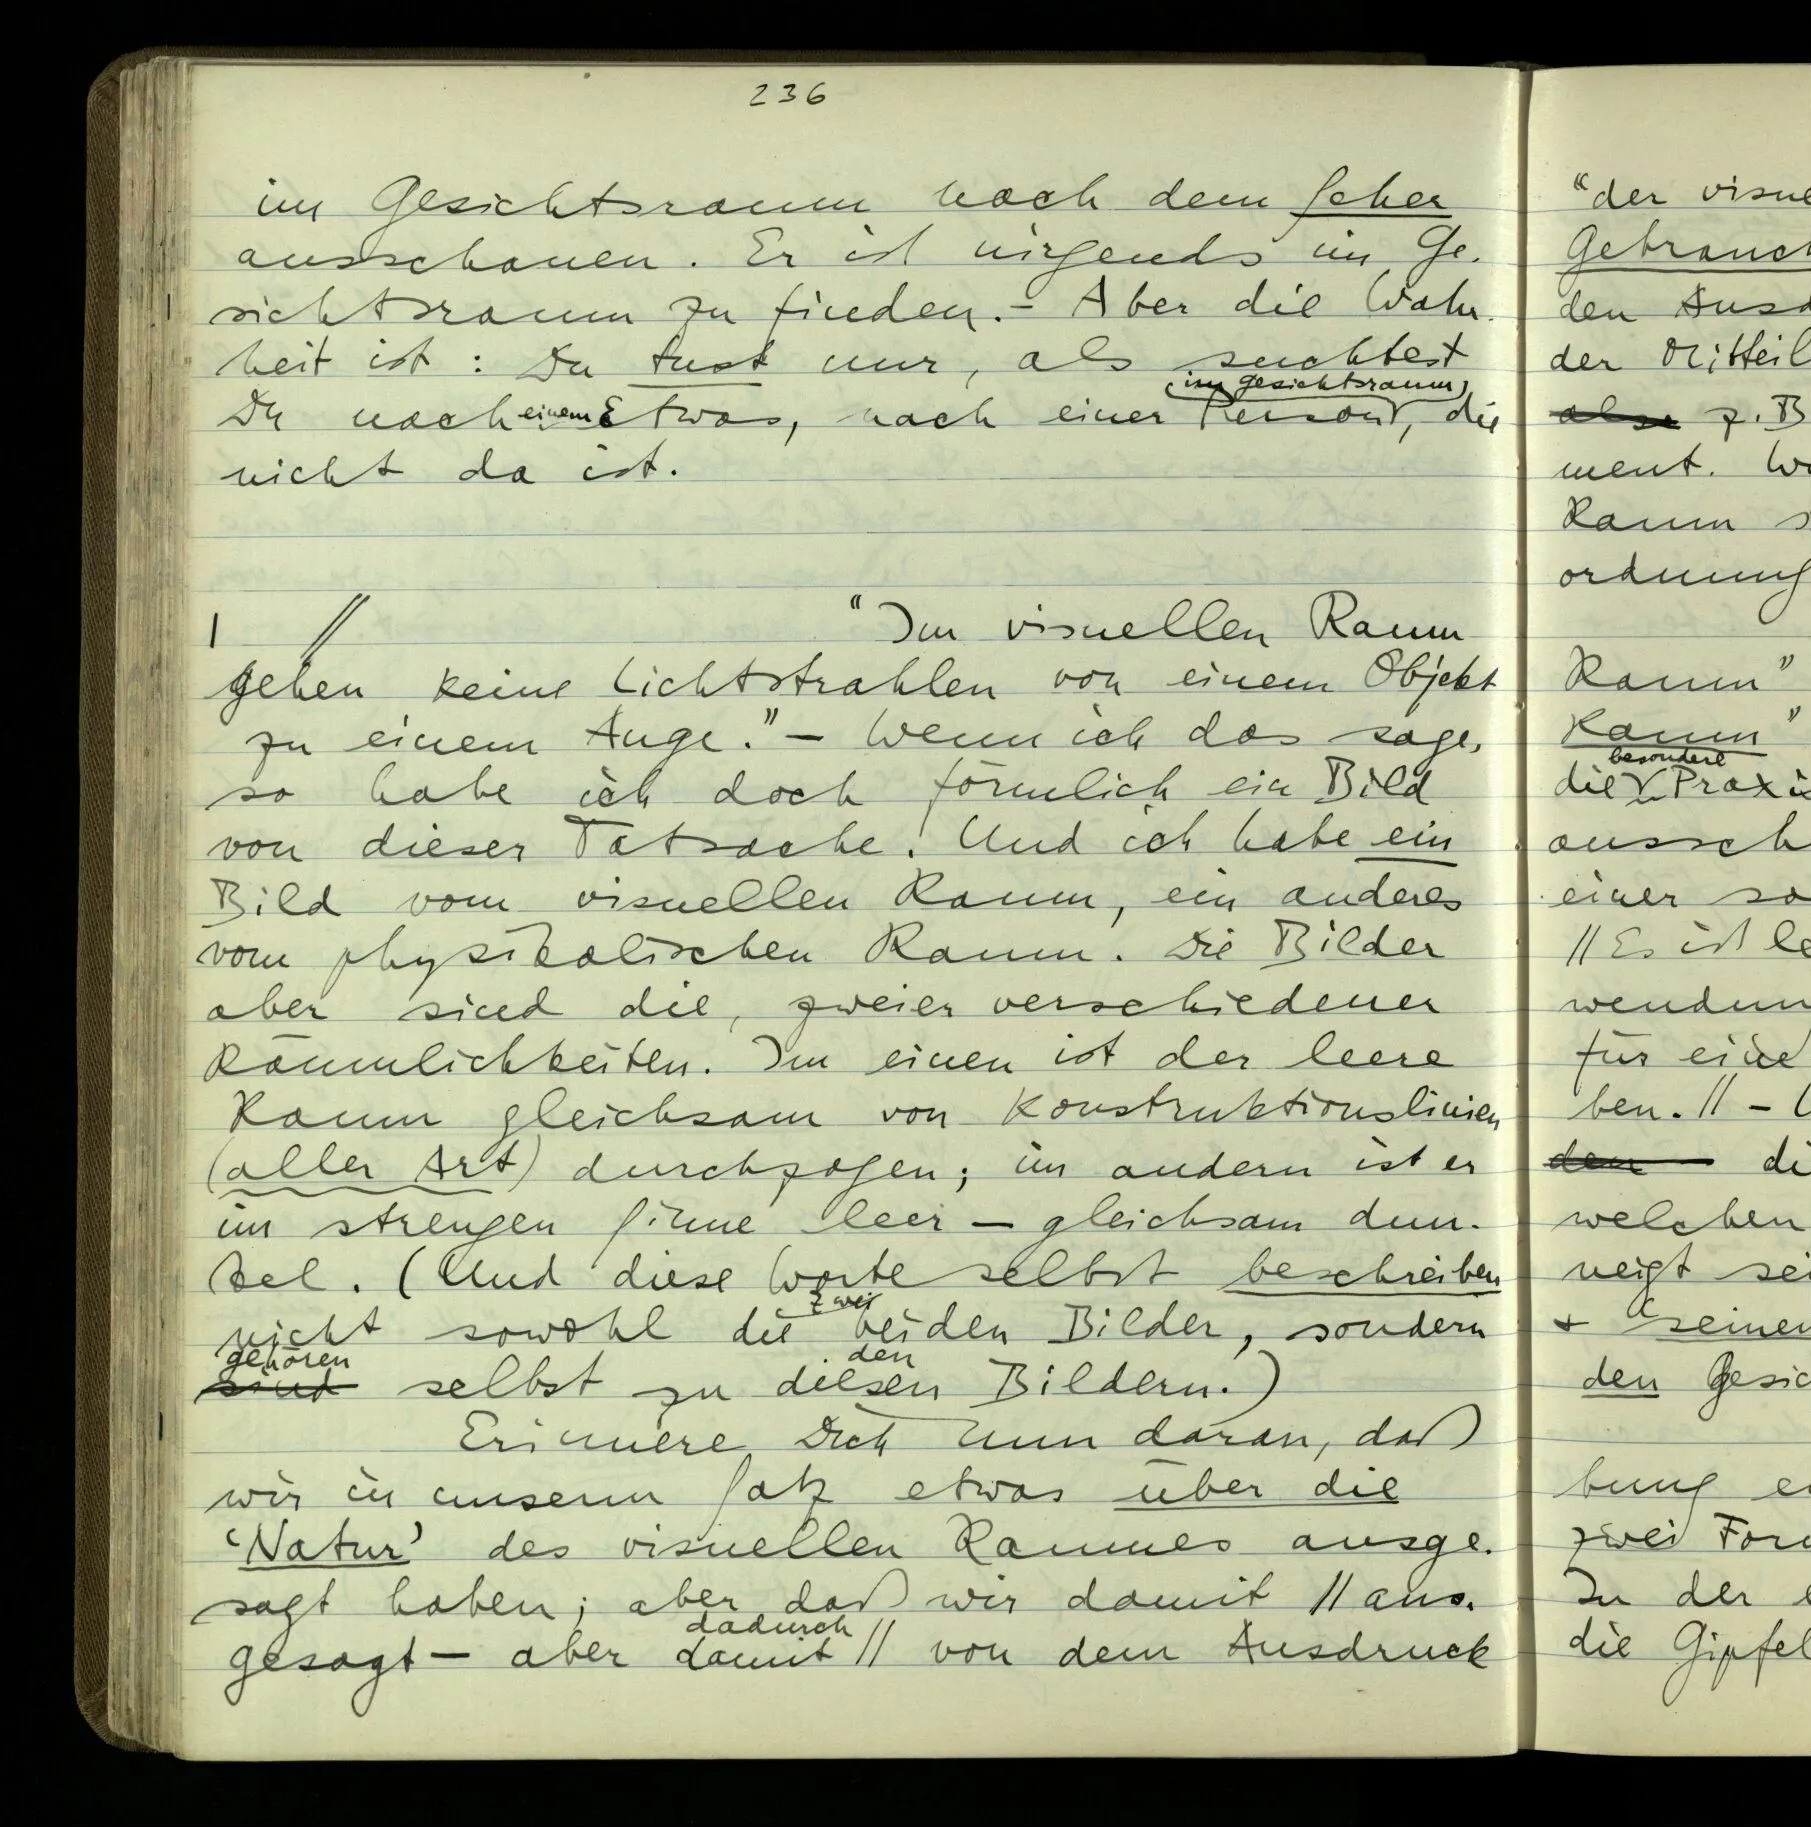 236
im Gesichtsraum nach dem Seher
ausschauen. Er ist nirgends im Ge-
sichtsraum zu finden. – Aber die Wahr-
heit ist: Du tust nur, als suchtest
(im Gesichtsraum)
Du nach einem Etwas, nach einer Person, die
nicht da ist.
| // "Im visuellen Raum
gehen keine Lichtstrahlen von einem Objekt
zu einem Auge." – Wenn ich das sage,
so habe ich doch förmlich ein Bild
von dieser Tatsache. Und ich habe ein
Bild vom visuellen Raum, ein anderes
vom physikalischen Raum. Die Bilder
aber sind die, zweier verschiedener
Räumlichkeiten. Im einen ist der leere
Raum gleichsam von Konstruktionslinien
(aller Art) durchzogen; im andern ist er
im strengen Sinne leer – gleichsam dun-
kel. (Und diese Worte selbst beschreiben
zwei
nicht sowohl die beiden Bilder, sondern
gehören den
sind selbst zu diesen Bildern.)
Erinnere Dich nun daran, daß
wir in unserm Satz etwas über die
'Natur' des visuellen Raumes ausge-
sagt haben; aber daß wir damit // aus-
dadurch
gesagt – aber damit // von dem Ausdruck
"der visue
Gebrauch
den Ausd
der Mitteil
also z. B
ment. W
Raum s
ordnung
Raum"
Raum"
besondere
die Praxis
aussch
einer so
// Es ist le
wendun
für eine
ben. // –
den di
welchen
neigt sei
+ seinen
den Gesic
bung ei
zwei For
In der e
die Gipfel